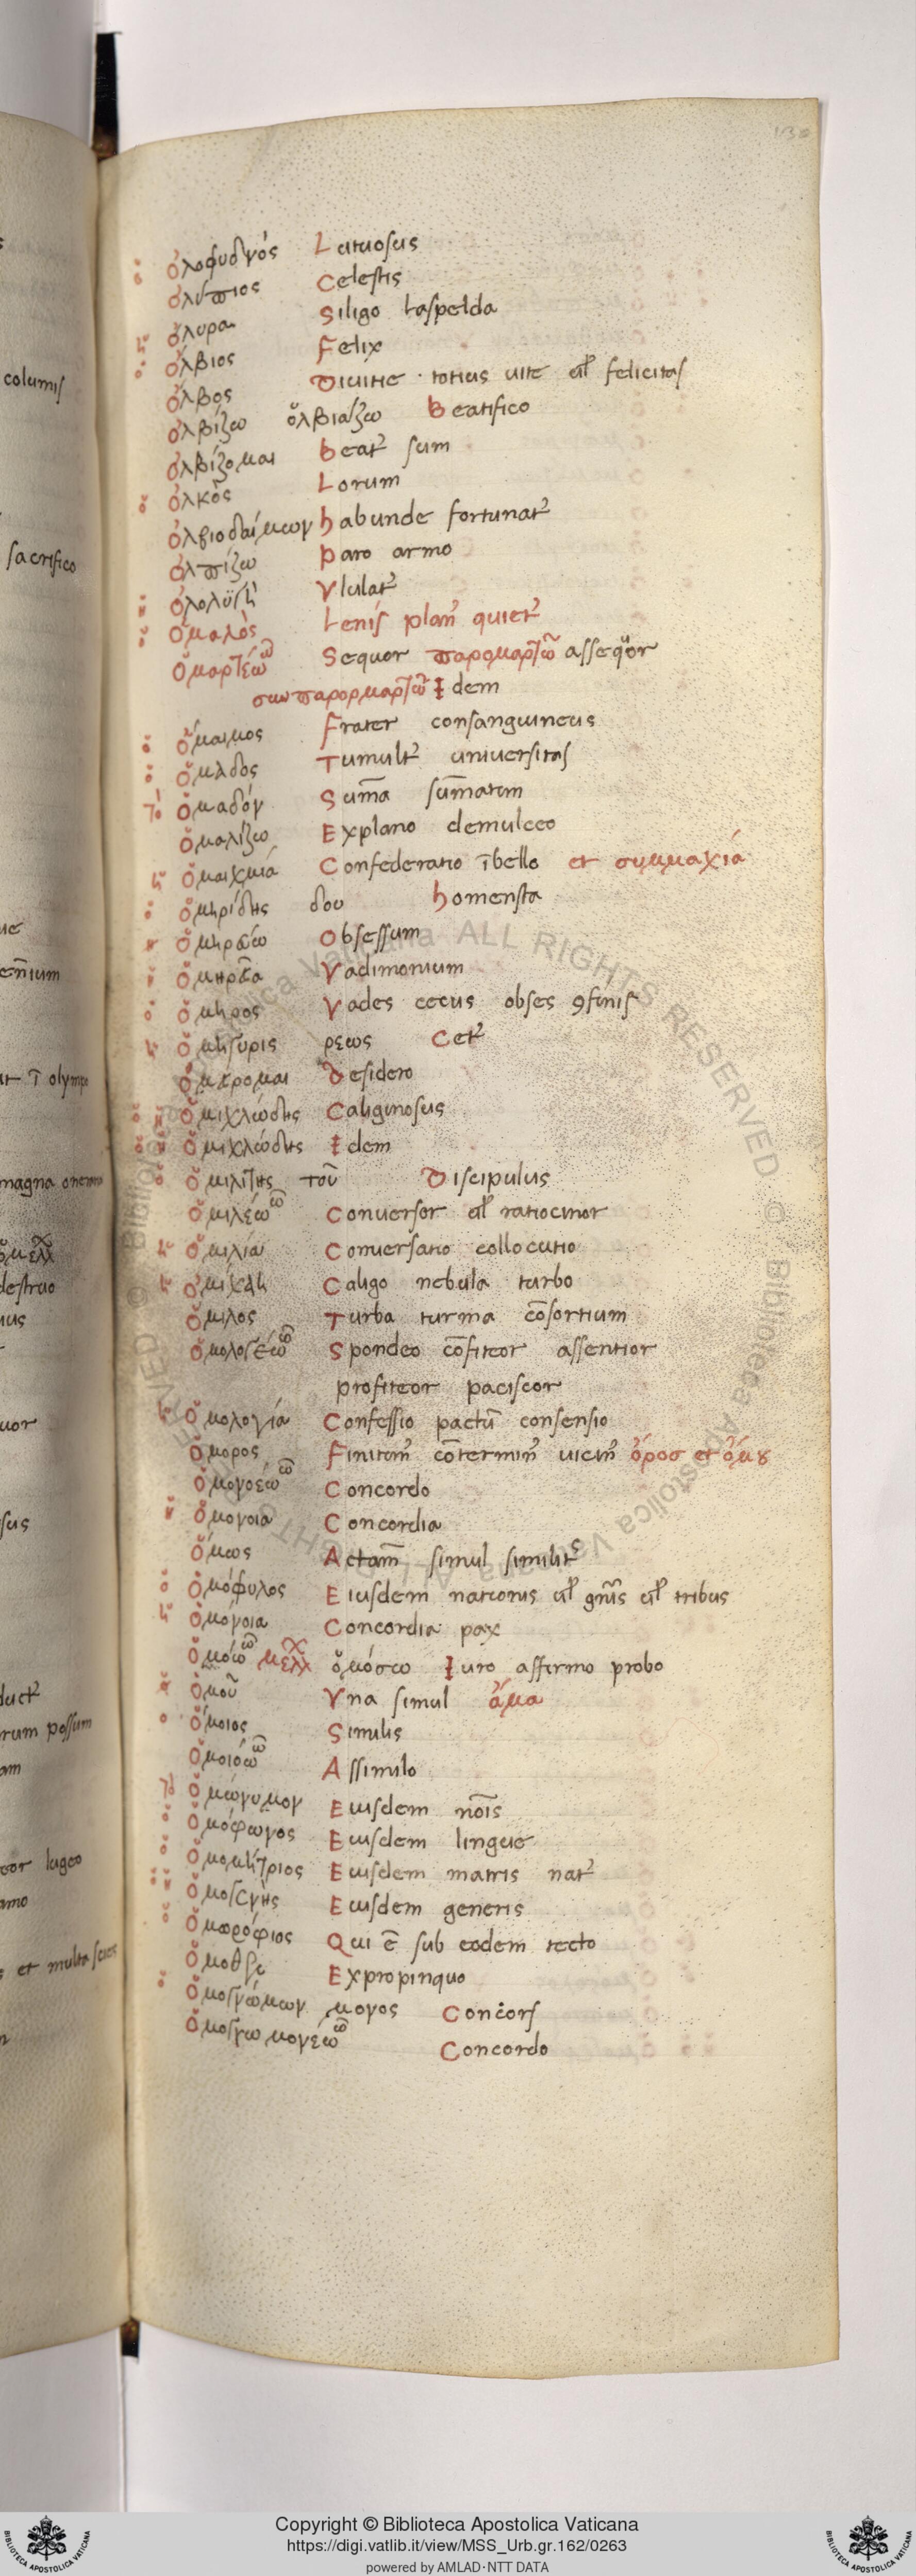 130
ὀλοφυδνός Luctuosus
ὀλύπιος Celestis
ὄλυρα Siligo haspelda
ὄλβιος Felix
ὄλβος Diuitie · totius uite ul̃ felicitas
ὀλβίζω ὀλβιάζω Beatifico
ὀλβίζομαι Beat᾿ sum
ὁλκὸς Lorum
ὀλβιοδαίμων habunde fortunat᾿
ὁλπίζω Paro armo
ὀλολϋγὴ Vlulat᾿
ὁμαλὸς Lenis plan᾿ quiet᾿
ὁμαρτέω ῶ Sequor παρομαρτῶ assequor
συνπαρομαρτῶ Idem
ὅμαιμος Frater consanguineus
ὅμαδος Tumult᾿ uniuersitas
ὁμαδόν Sum̄a sum̄atim
ὁμαλίζω Explano demulceo
ὁμαιχμία Confederatio ī bello et συμμαχία
ὁμηρίδης δου homerista
ὁμηρεύω Obsessum
ὅμηρεα Vadimonium
ὅμηρος Vades cecus obses 9finis
ὁμήγυρις ρεως Cet᾿
ὁμείρομαι Desidero
ὁμιχλώδης Caliginosus
ὁμιχλώδης Idem
ὁμιλίτης τοῦ Discipulus
ὁμιλέω ῶ Conuersor ul̃ ratiocinor
ὁμιλία Conuersatio collocutio
ὁμίχλη Caligo nebula turbo
ὅμιλος Turba turma cōsortium
ὁμολογέω ῶ Spondeo cōfiteor assentior
profiteor paciscor
ὁμολογία Confessio pactū consensio
ὅμορος Finitim᾿ cōtermin᾿ uicin᾿ ὅροσ et ὁμȣ
ὁμονοέω ῶ Concordo
ὁμόνοια Concordia
ὅμως Actam̄ simul similit᾿
ὁμόφυλος Eiusdem nationis ul̃ gn̄is ul̃ tribus
ὁμόνοια Concordia pax
ὁμόω ῶ μελλ ὁμόσω Iuro affirmo probo
ὁμοῦ Vna simul ἅμα
ὅμοιος Similis
ὁμοιόω ῶ Assimilo
ὁμώνυμον Eiusdem nōis
ὁμόφωνος Eiusdem lingue
ὁμομήτριος Eiusdem matris nat᾿
ὁμογενὴς Eiusdem generis
ὁμωρόφιος Qui ē sub eodem tecto
ὁμοθεν Expropinquo
ὁμογνώμων μονος Concors
ὁμογνωμονέω ῶ Concordo
columis
sacrifico
magna
destruo
et multa
Copyright © Biblioteca Apostolica Vaticana
https://digi.vatlib.it/view/MSS_Urb.gr.162/0263
powered by AMLAD·NTT DATA